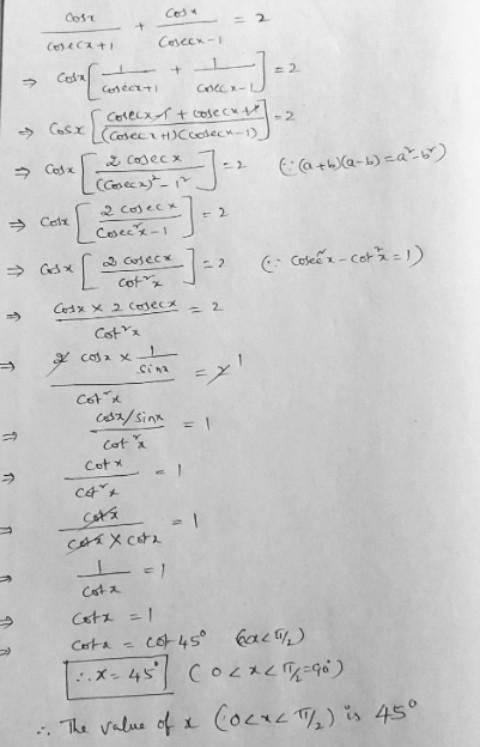 cosx/(cosecx+1) + cosx/(cosecx-1) = 2
⇒ cosx[1/(cosecx+1) + 1/(cosecx-1)] = 2
⇒ cosx[(cosecx-1 + cosecx+1)/((cosecx+1)(cosecx-1))] = 2
⇒ cosx[2 cosecx/((cosecx)²-1²)] = 2 (∵ (a+b)(a-b) = a²-b²)
⇒ cosx[2 cosecx/(cosec²x-1)] = 2
⇒ cosx[2 cosecx/cot²x] = 2 (∵ cosec²x - cot²x = 1)
⇒ (cosx × 2 cosecx)/cot²x = 2
⇒ (2 cosx × 1/sinx)/cot²x = 2 1
⇒ (cosx/sinx)/cot²x = 1
⇒ cotx/cot²x = 1
⇒ cotx/(cotx × cotx) = 1
⇒ 1/cotx = 1
⇒ cotx = 1
⇒ cotx = cot 45° (x<π/2)
∴ x = 45° (0<x<π/2=90°)
∴ The value of x (0<x<π/2) is 45°